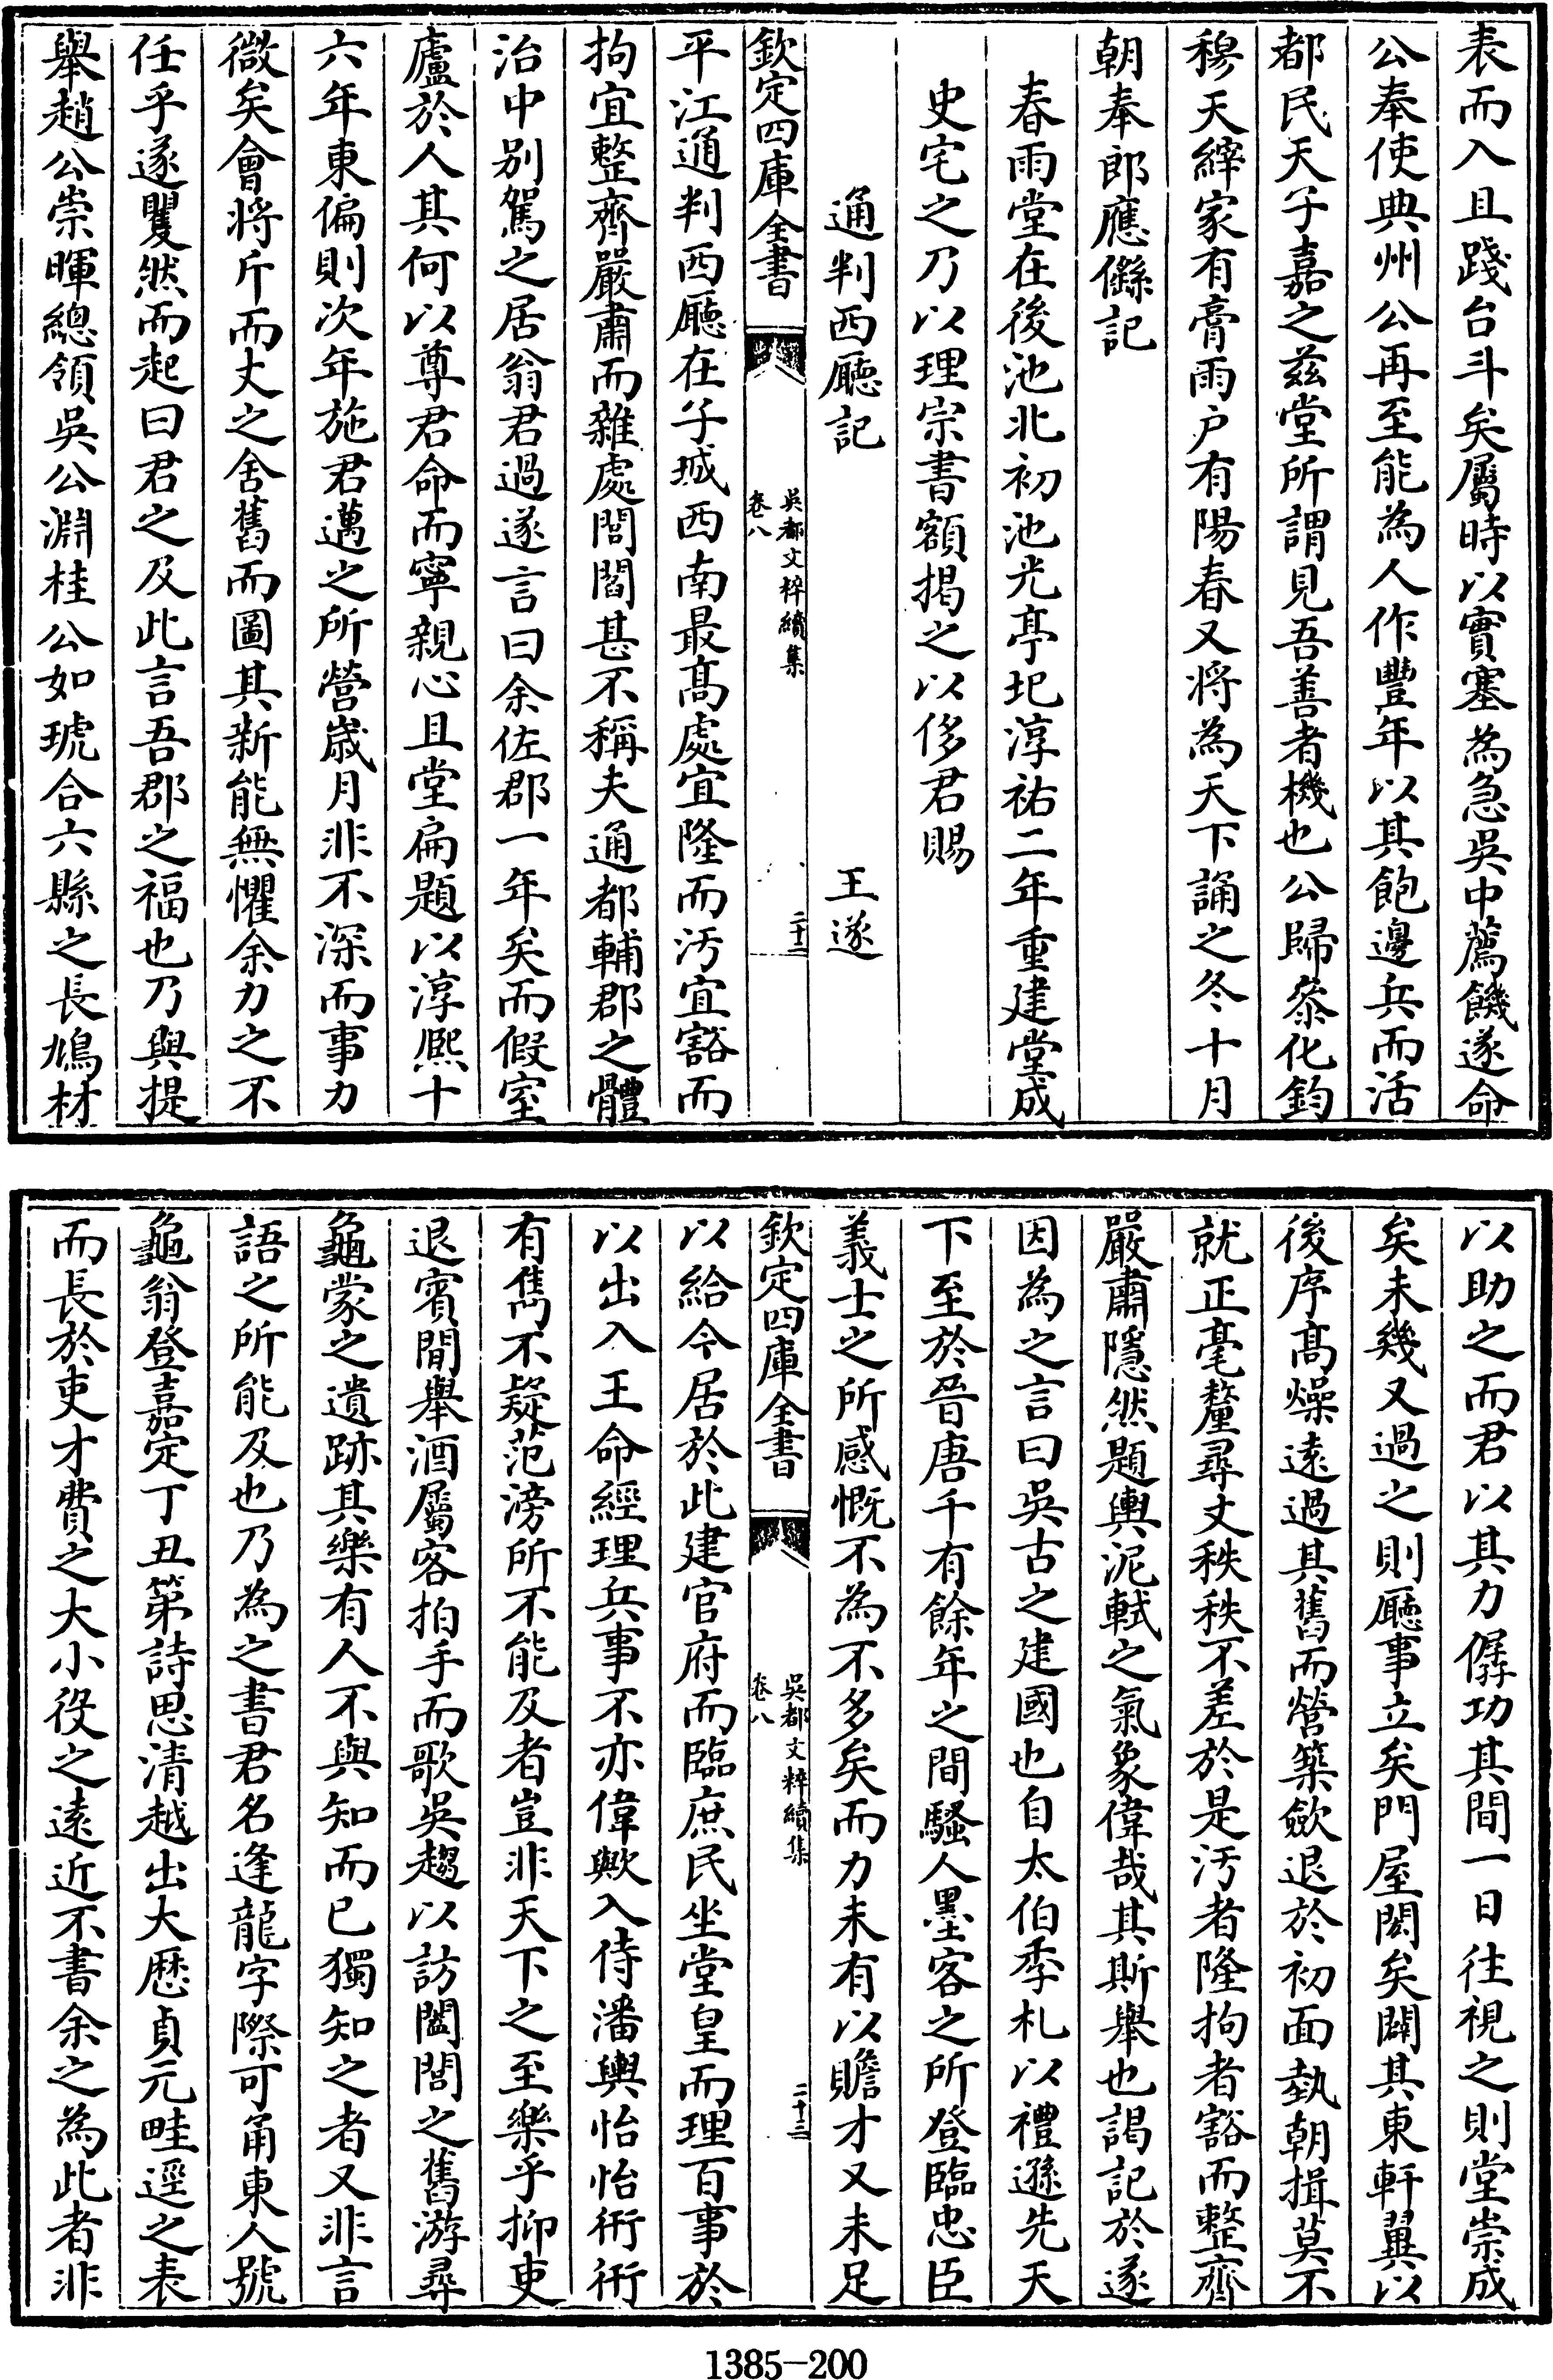 表而入且踐台斗矣屬時以實塞為急吳中薦饑遂命
公奉使典州公再至能為人作豐年以其飽邊兵而活
都民天子嘉之兹堂所謂見吾善者機也公歸叅化鈞
穆天縡家有膏雨户有陽春又将為天下誦之冬十月
朝奉郎應𦇯記
春雨堂在後池北初池光亭圮淳祐二年重建堂成
史宅之乃以理宗書額掲之以侈君賜
通判西廳記
王遂
欽定四庫全書
吳都文粹續集
卷八
二十二
平江通判西廳在子城西南最髙處宜隆而汚宜豁而
拘宜整齊嚴肅而雜處閻閻甚不稱夫通都輔郡之體
治中别駕之居翁君過遂言曰余佐郡一年矣而假室
廬於人其何以尊君命而寧親心且堂扁題以淳熈十
六年東偏則次年施君邁之所營嵗月非不深而事力
微矣會将斤而丈之舍舊而圖其新能無懼余力之不
任乎遂矍然而起曰君之及此言吾郡之福也乃與提
舉趙公崇暉總領吳公淵桂公如琥合六縣之長鳩材
以助之而君以其力僝功其間一日往視之則堂崇成
矣未幾又過之則廳事立矣門屋閎矣闢其東軒翼以
後序髙燥逺過其舊而營築歛退於初面埶朝揖莫不
就正毫釐尋丈秩秩不差於是汚者隆拘者豁而整齊
嚴肅隱然題輿泥軾之氣象偉哉其斯舉也謁記於遂
因為之言曰吳古之建國也自太伯季札以禮遜先天
下至於晉唐千有餘年之間騷人墨客之所登臨忠臣
義士之所感慨不為不多矣而力未有以贍才又未足
欽定四庫全書
吳都文粹續集
卷八
二十三
以給今居於此建官府而臨庶民坐堂皇而理百事於
以出入王命經理兵事不亦偉歟入侍潘輿怡怡衎衎
有雋不疑范滂所不能及者豈非天下之至樂乎抑吏
退賓閒舉酒屬客拍手而歌吳趨以訪闔閭之舊游尋
龜蒙之遺跡其樂有人不與知而已獨知之者又非言
語之所能及也乃為之書君名逢龍字際可甬東人號
龜翁登嘉定丁丑第詩思清越出大厯貞元畦逕之表
而長於吏才費之大小役之逺近不書余之為此者非
1385-200